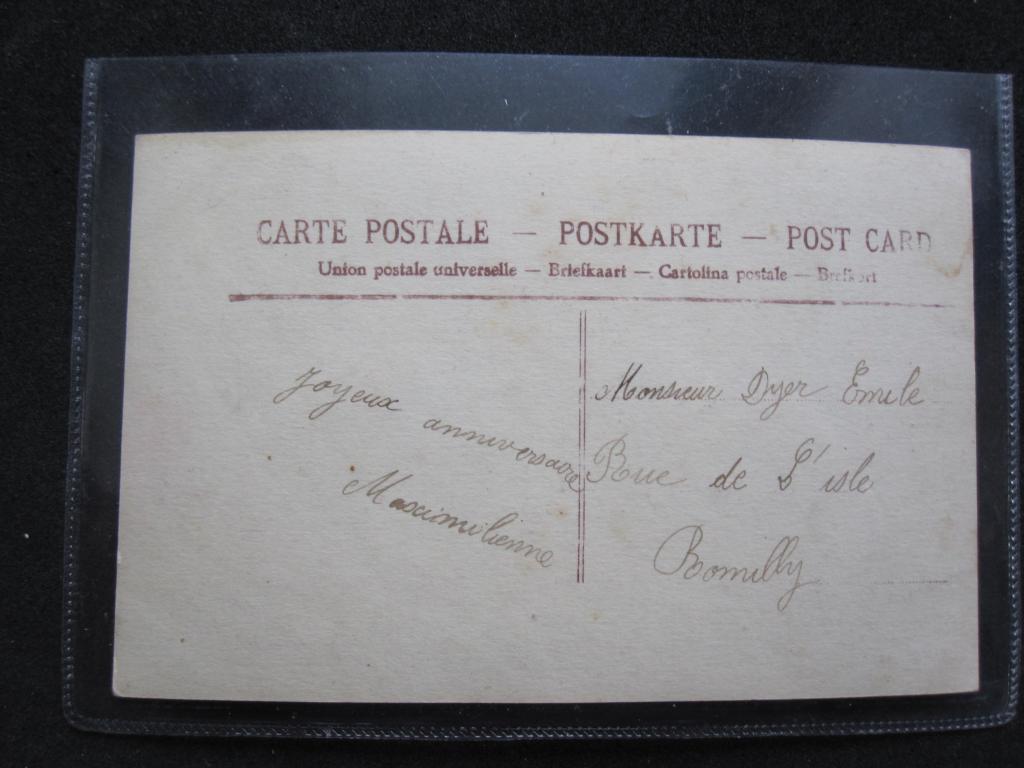 CARTE POSTALE — POSTKARTE — POST CARD
Union postale universelle — Briefkaart — Cartolina postale — Brefkort
Joyeux anniversaire
Maximilienne
Monsieur Dyer Emile
Rue de L'isle
Romilly